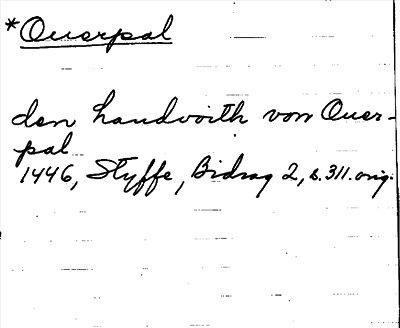 *Querpal
den handvoith von Quer-
pal
1446, Styffe, Bidrag 2, s. 311. orig.